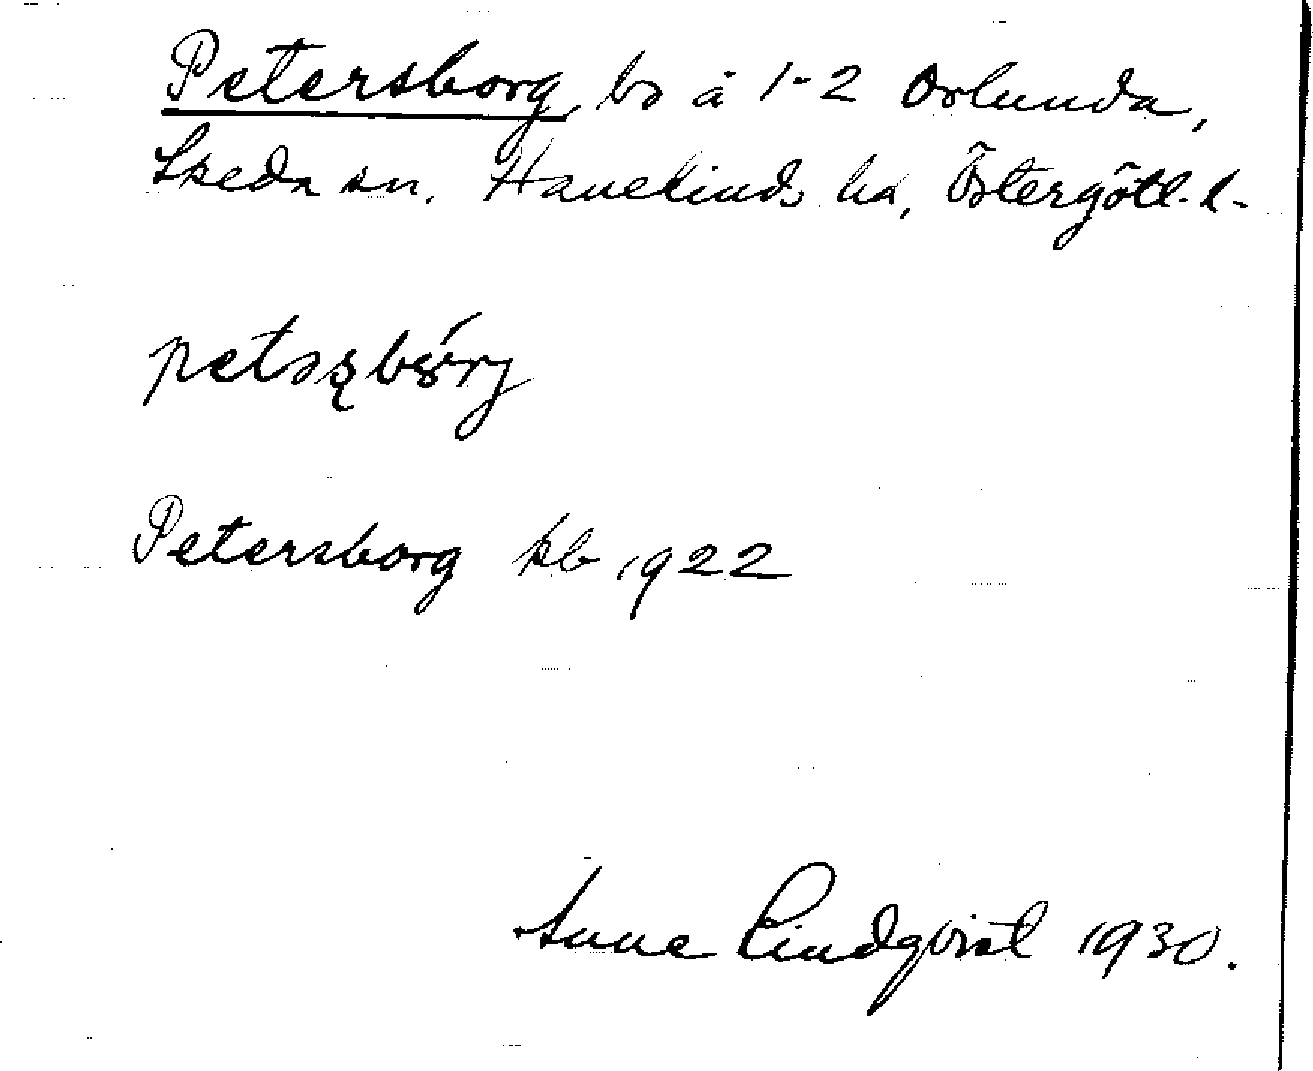 Petersborg, bs å 1-2 Orlunda,
Skeda sn. Hanekinds hd, Östergötl. l-
Petersborg kb 1922
Sune Lindqvist 1930.